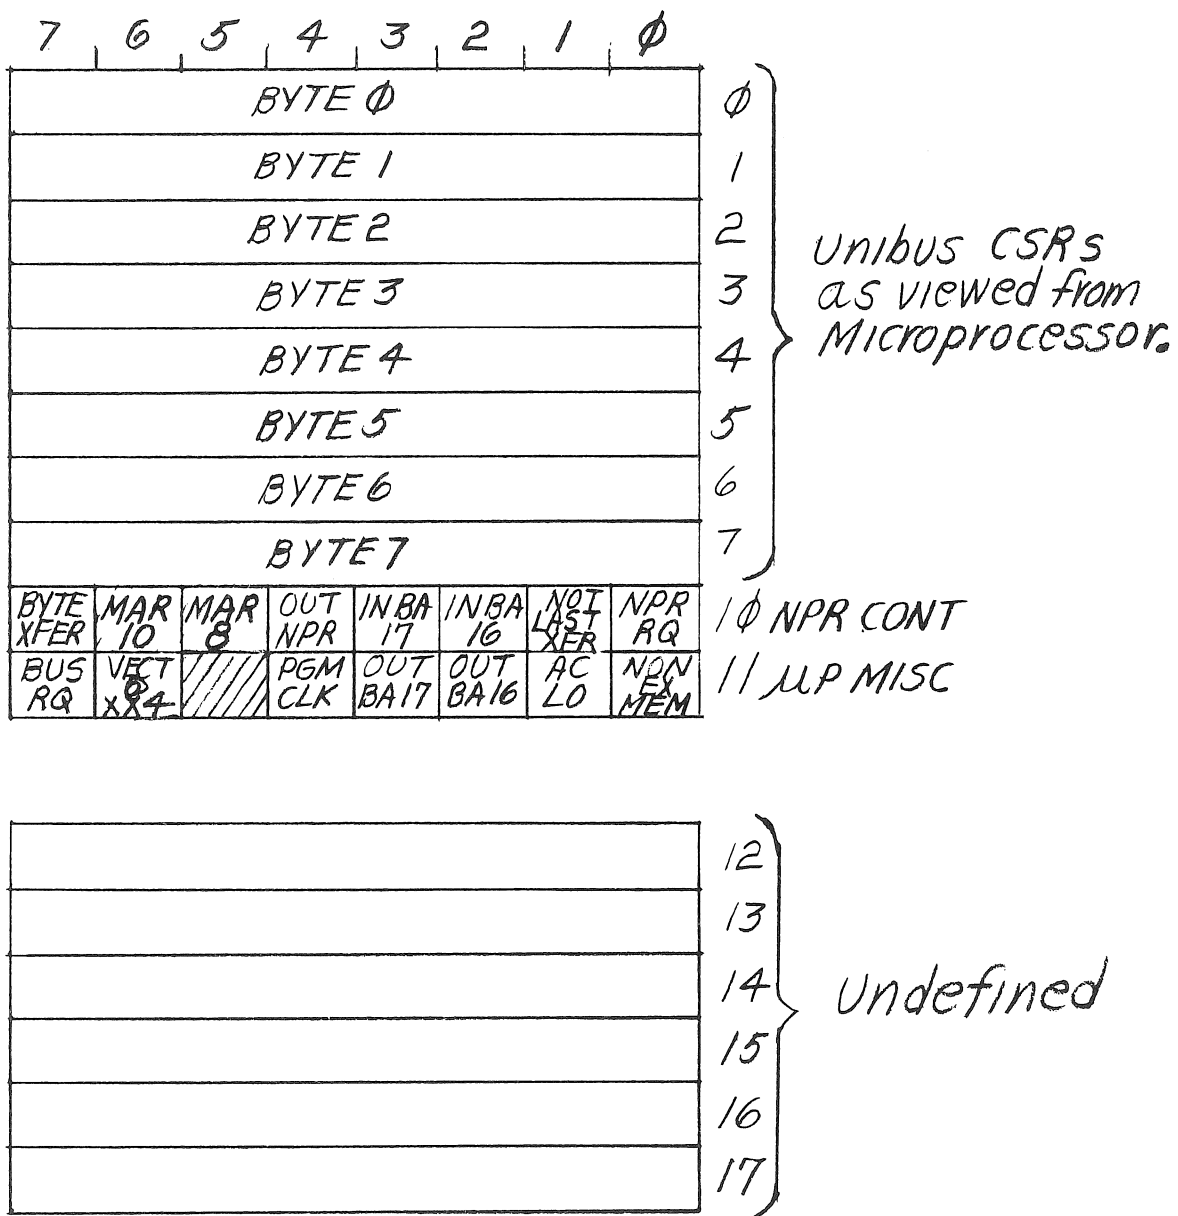 7 6 5 4 3 2 1 Ø
BYTE Ø Ø
BYTE 1 1
BYTE 2 2
BYTE 3 3
BYTE 4 4
BYTE 5 5
BYTE 6 6
BYTE 7 7
Unibus CSRs
as viewed from
Microprocessor.
BYTE XFER MAR 10 MAR 8 OUT NPR IN BA 17 IN BA 16 NOT LAST XFR NPR RQ 1Ø NPR CONT
BUS RQ VECT @ XX4 PGM CLK OUT BA17 OUT BA16 AC LO NON EX MEM 11 µP MISC
12
13
14
15
16
17
Undefined